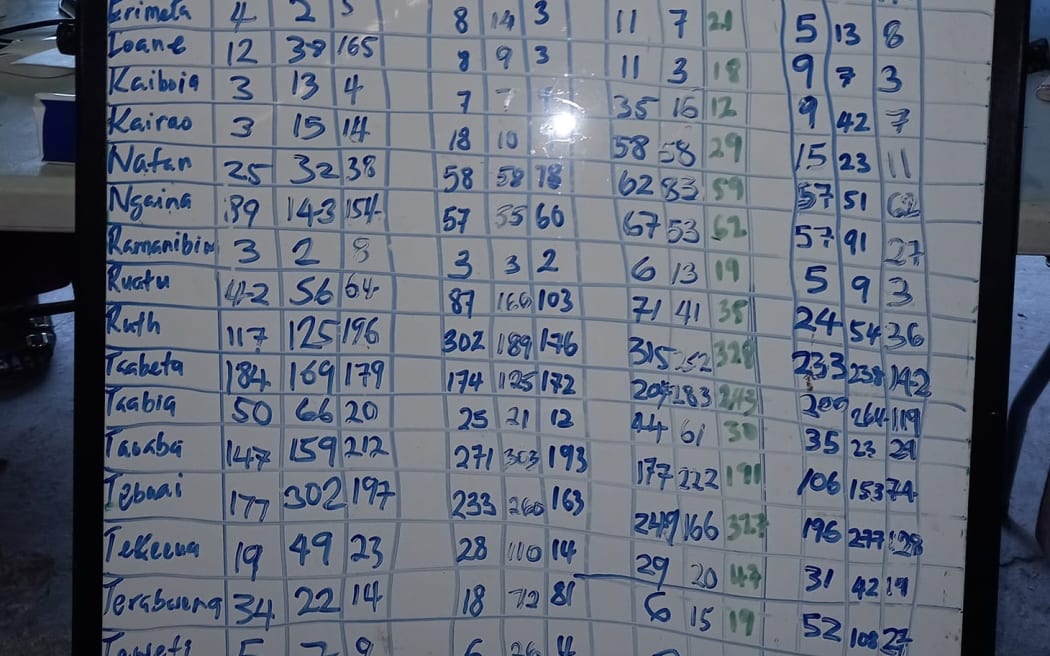 Erimeta 4 2 5 8 14 3 11 7 21 5 13 8
Ioane 12 38 165 8 9 3 11 3 18 9 7 3
Kaiboia 3 13 4 7 35 16 12 9 42 7
Kairao 3 15 14 18 10 58 58 29 15 23 11
Natan 25 32 38 58 58 78 62 83 59 57 51 62
Ngaina 89 143 154 57 55 60 67 53 62 57 91 27
Ramanibin 3 2 8 3 3 2 6 13 19 5 9 3
Ruatu 42 56 64 87 166 103 71 41 35 24 54 36
Ruth 117 125 196 302 189 176 315 252 328 233 238 142
Taabeta 184 169 179 174 125 172 204 283 243 209 264 119
Taabia 50 66 20 25 21 12 44 61 30 35 23 29
Tababa 147 159 212 271 303 193 177 222 191 106 153 74
Tebaai 177 302 197 233 260 163 249 166 327 196 277 128
Tekeeua 19 49 23 28 110 14 29 20 47 31 42 19
Terabuena 34 22 14 18 72 81 6 15 19 52 108 27
5 7 9 6 26 4